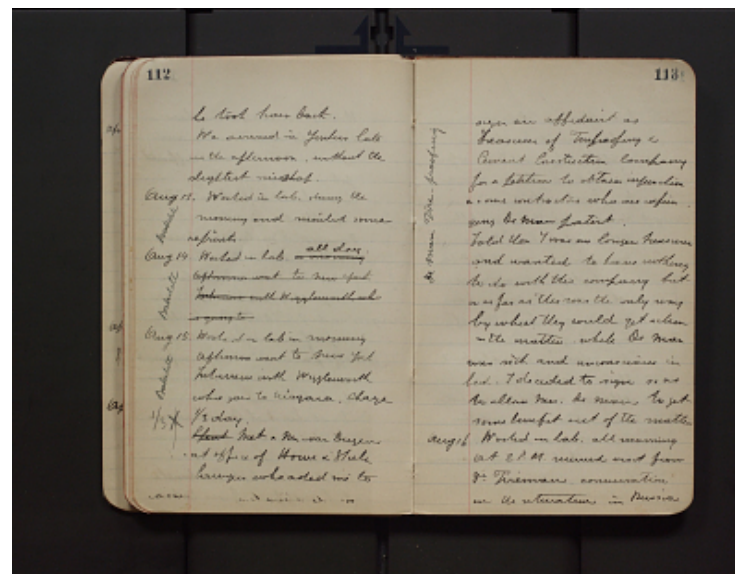 112
he took her back.
We arrived in Yonkers late
in the afternoon, without the
slightest mishap.
Aug 13. Worked in lab. during the
morning and mailed some
reprints
Bakelite
Aug 14. Worked in lab. all day.
or morning
afternoon went to New York
Interview with Wigglesworth who
Bakelite
Aug 15. Worked in lab in morning
afternoon went to New York
Interview with Wigglesworth
who goes to Niagara. Charge
1/3 day.
Bakelite
1/3
Spent Met a Mr. van Bergen
at office of Howe &
lawyer who asked me to
113
sign an affidavit as
Treasurer of Fireproofing &
Cement Construction Company
for a petition to obtain injunction
against contractors who are infrin
ging De Man patent.
Told them I was no longer treasurer
and wanted to have nothing
to do with this company but
in as far as this was the only way
by which they could get action
in the matter, while De Man
was sick and unconscious in
bed. I decided to sign so as
to allow Mrs. De Man to get
some benefit out of the matter
De Man Fire proofing
Aug 16 Worked in lab. all morning
at 2 P.M. received visit from
Dr. Fireman conversation
on the situation in Russia